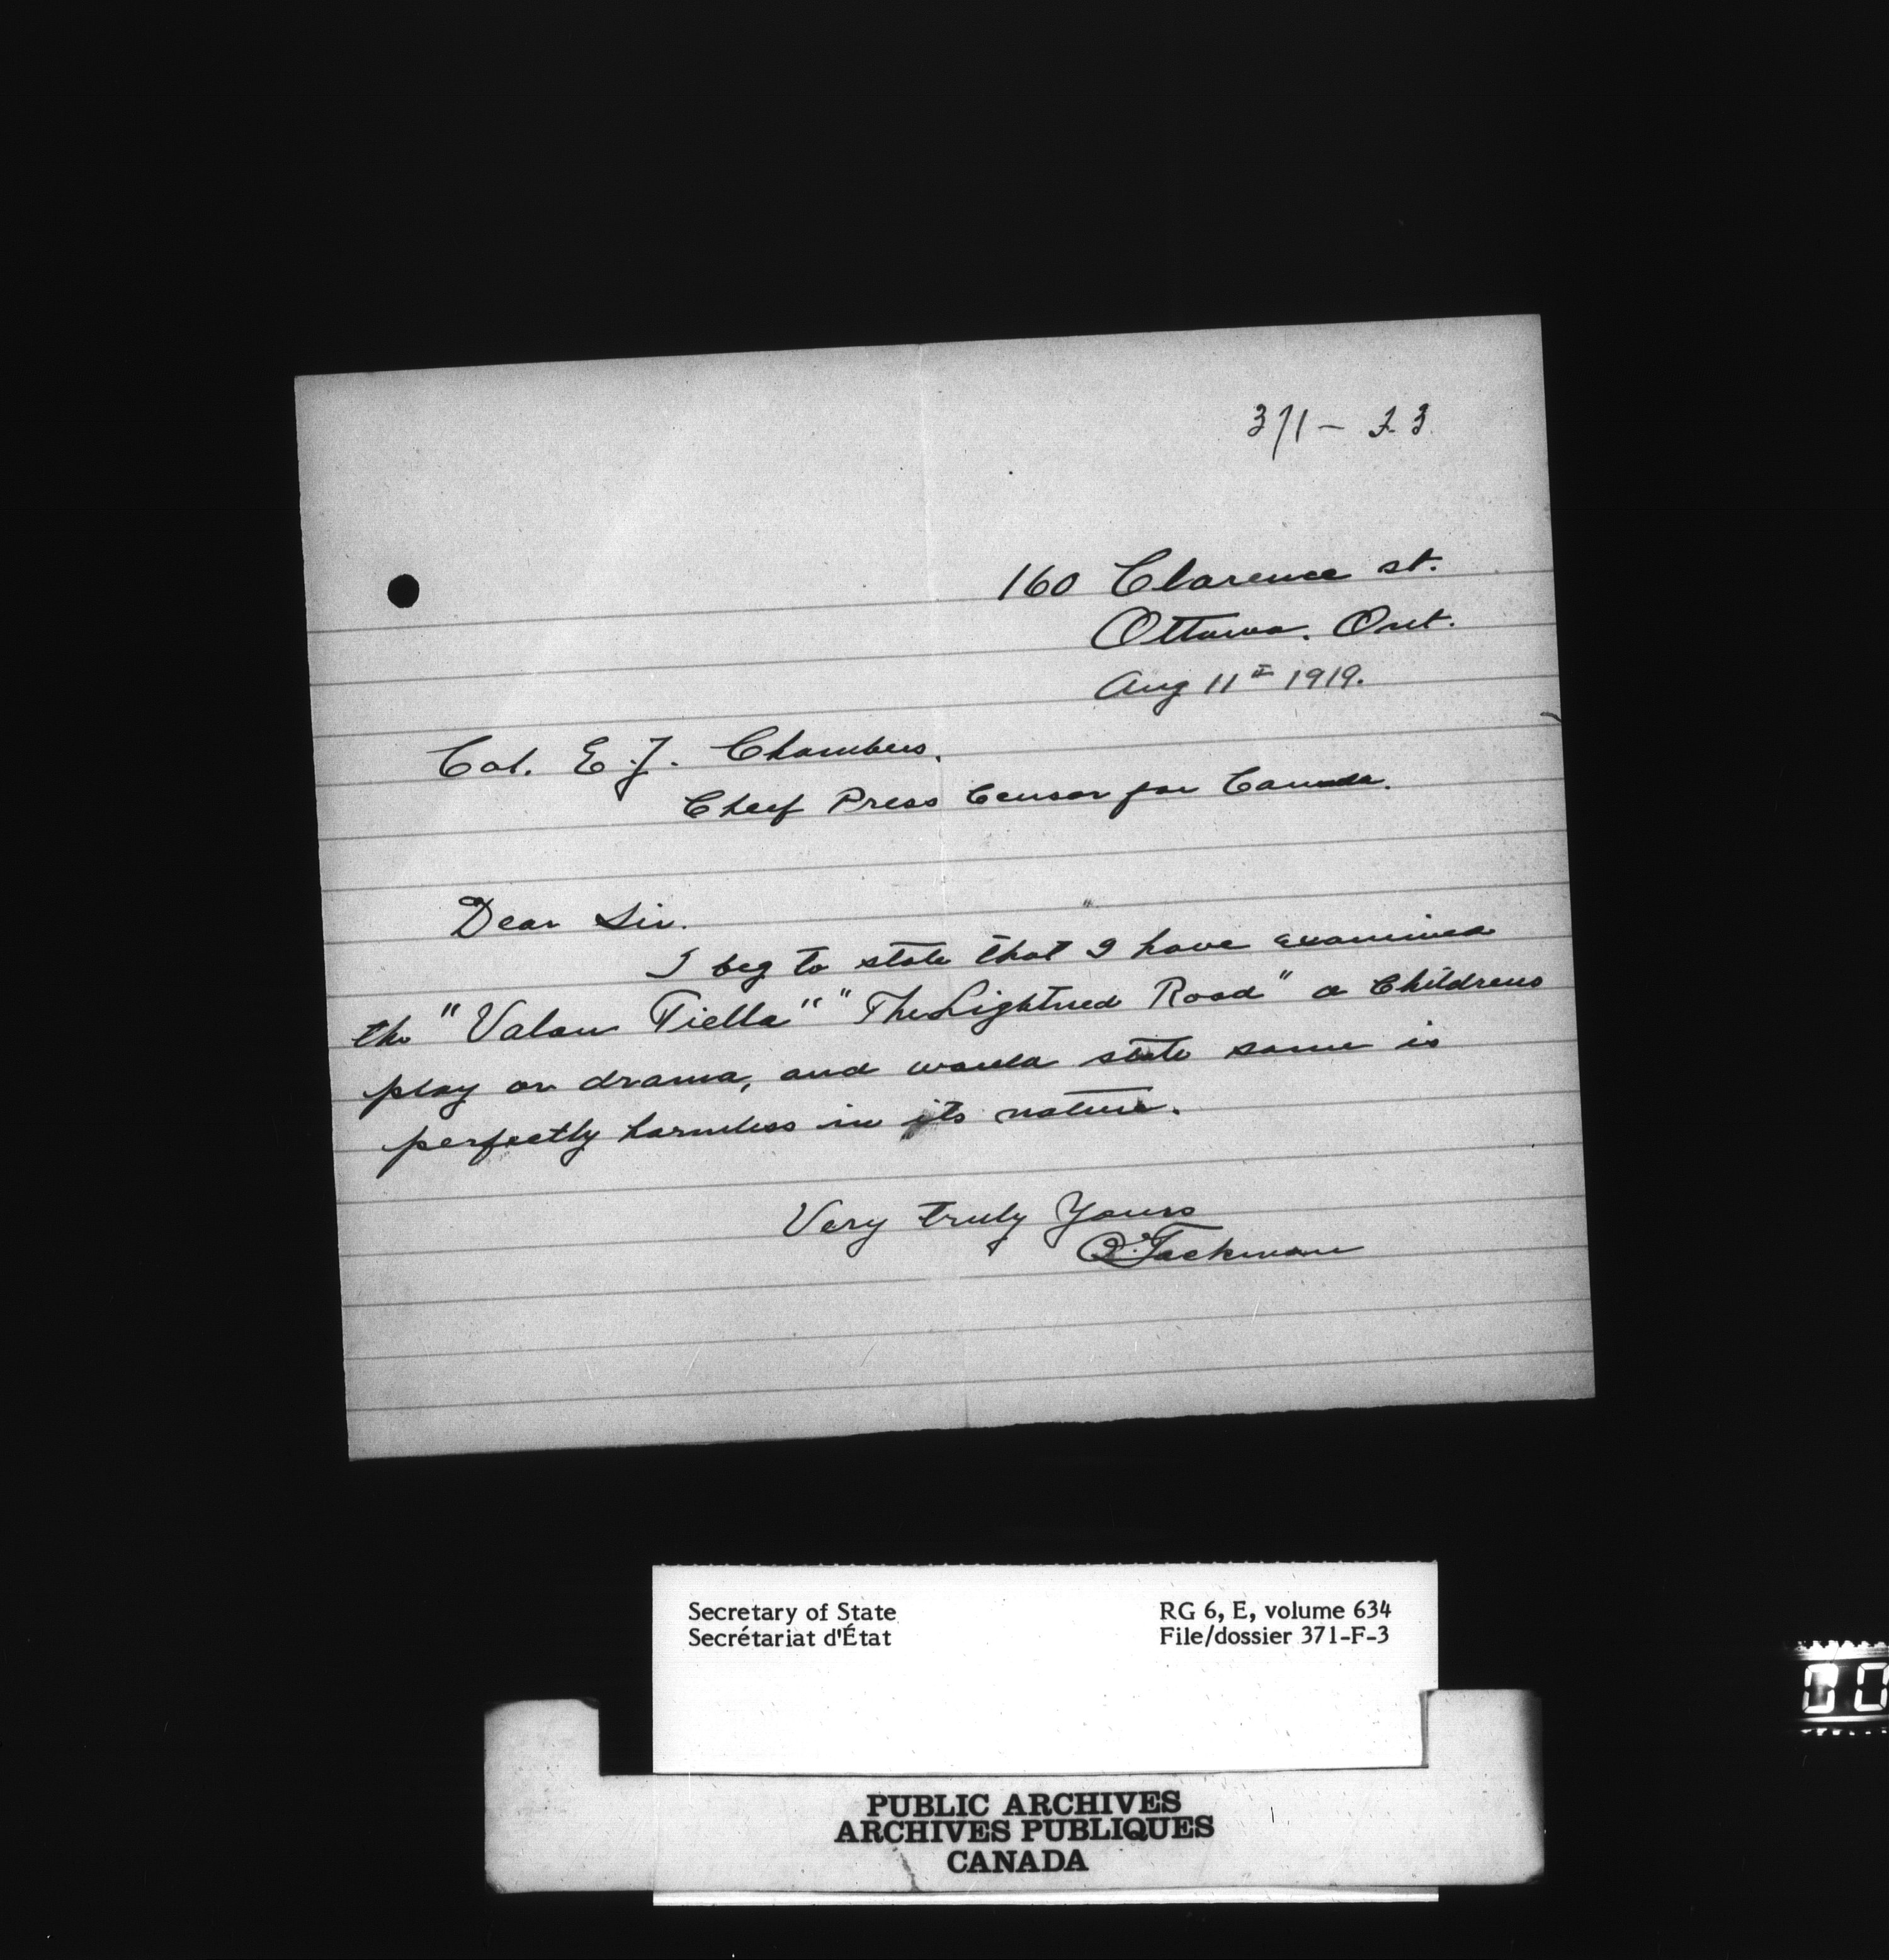 371 - F. 3.
160 Clarence st.
Ottawa. Ont.
Aug 11th 1919.
Col. E. J. Chambers.
Cheef Press Censor for Canada.
Dear Sir.
I beg to state that I have examined
the "Valon Tiella" "The Lightned Road" a Childrens
play or drama, and would state same is
perfectly harmless in its nature.
Very truly Yours
Tackman
Secretary of State
Secrétariat d'État
RG 6, E, volume 634
File/dossier 371-F-3
PUBLIC ARCHIVES
ARCHIVES PUBLIQUES
CANADA
00